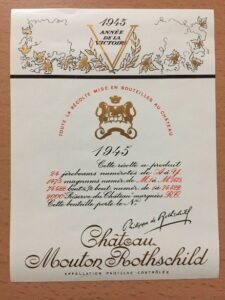 1945
ANNÉE
DE LA
VICTOIRE
V
TOUTE LA RÉCOLTE MISE EN BOUTEILLES AU CHÂTEAU
1945
Cette récolte a produit
24 jeroboams numérotés de A à Y
1475 magnums numér. de M à M1475
74422 bouts numér. de 1 à 74422
2000 Réserve du Château marquées R.C.
Cette bouteille porte le No
Philippe de Rothschild
Château
Mouton Rothschild
APPELLATION PAUILLAC CONTRÔLÉE